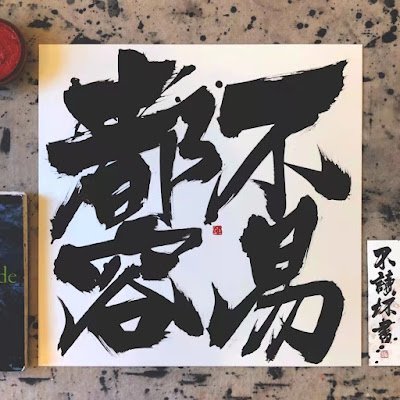 都不
容易
不讀坏書
de